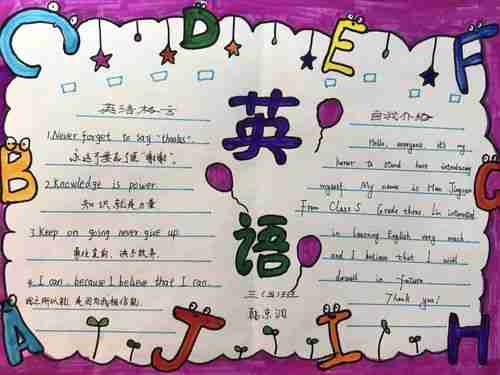 C D E F
B G
A J I H
英语
英语格言
1.Never forget to say "thanks".
永远不要忘了说"谢谢".
2.Knowledge is power.
知识就是力量
3.Keep on going never give up.
勇往直前, 决不放弃.
4.I can, because I believe that I can.
我之所以能, 是因为我相信能.
自我介绍
Hello, everyone, it's my
honor to stand here introducing
myself. My name is Han Jingrun
From Class 5 Grade three. I'm interested
in learning English very much
and I believe that I will
dwell in future
Thank you!
三(5)班
韩京润